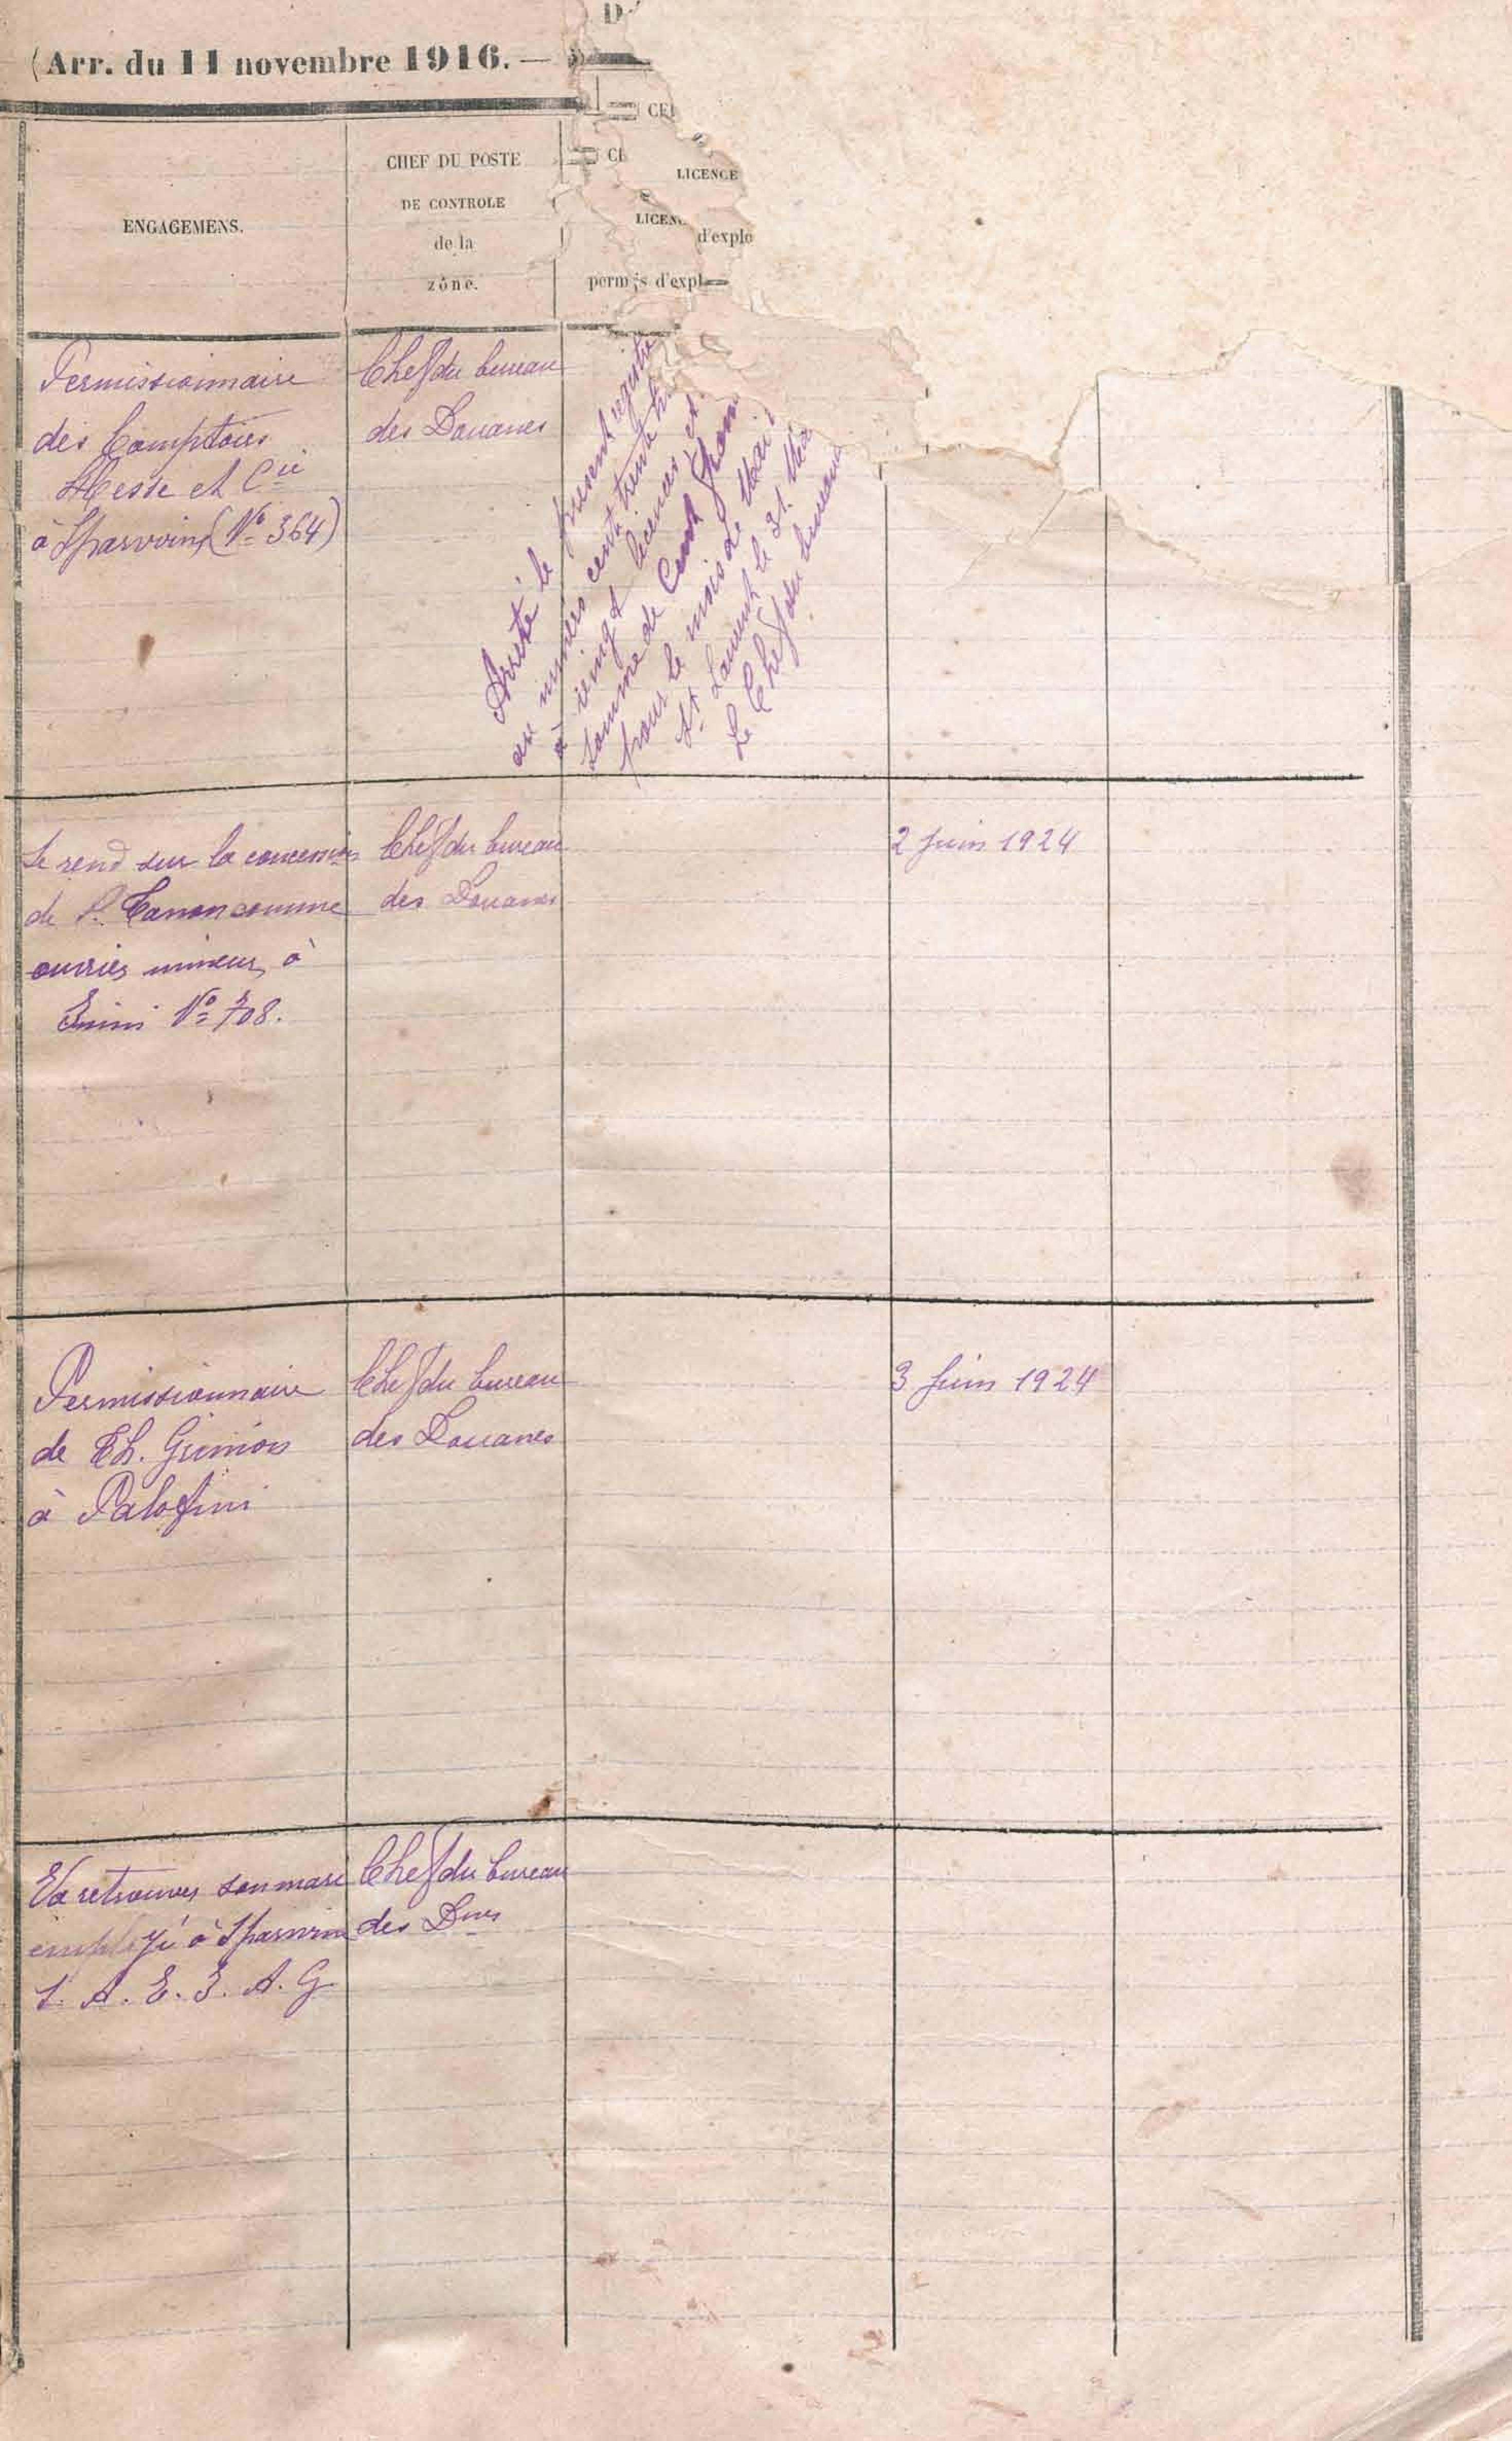 (Arr. du 11 novembre 1916. —
D
CEI
CE
LICENCE
LICENC
d'explo
permis d'expl
ENGAGEMENS.
CHEF DU POSTE
DE CONTROLE
de la
zône.
Permissionnaire
des Comptoirs
Hesse et Cie
à Sparwine (No 364)
Chef du bureau
des Douanes
Arrêté le présent registre
au numéro cent trente
à vingt licences et
somme de Cent fran
pour le mois de Mai
St Laurent le 31 Ma
Le Chef du bureau
Se rend sur la concession
de P. Tanon comme
ouvrier mineur, à
Inini No 708.
Chef du bureau
des Douanes
2 Juin 1924
Permissionnaire
de Th. Grimois
à Palofini
Chef du bureau
des Douanes
3 Juin 1924
Va retrouver son mari
employé à Sparwin
S. A. E. E. A. G
Chef du bureau
des Dnes